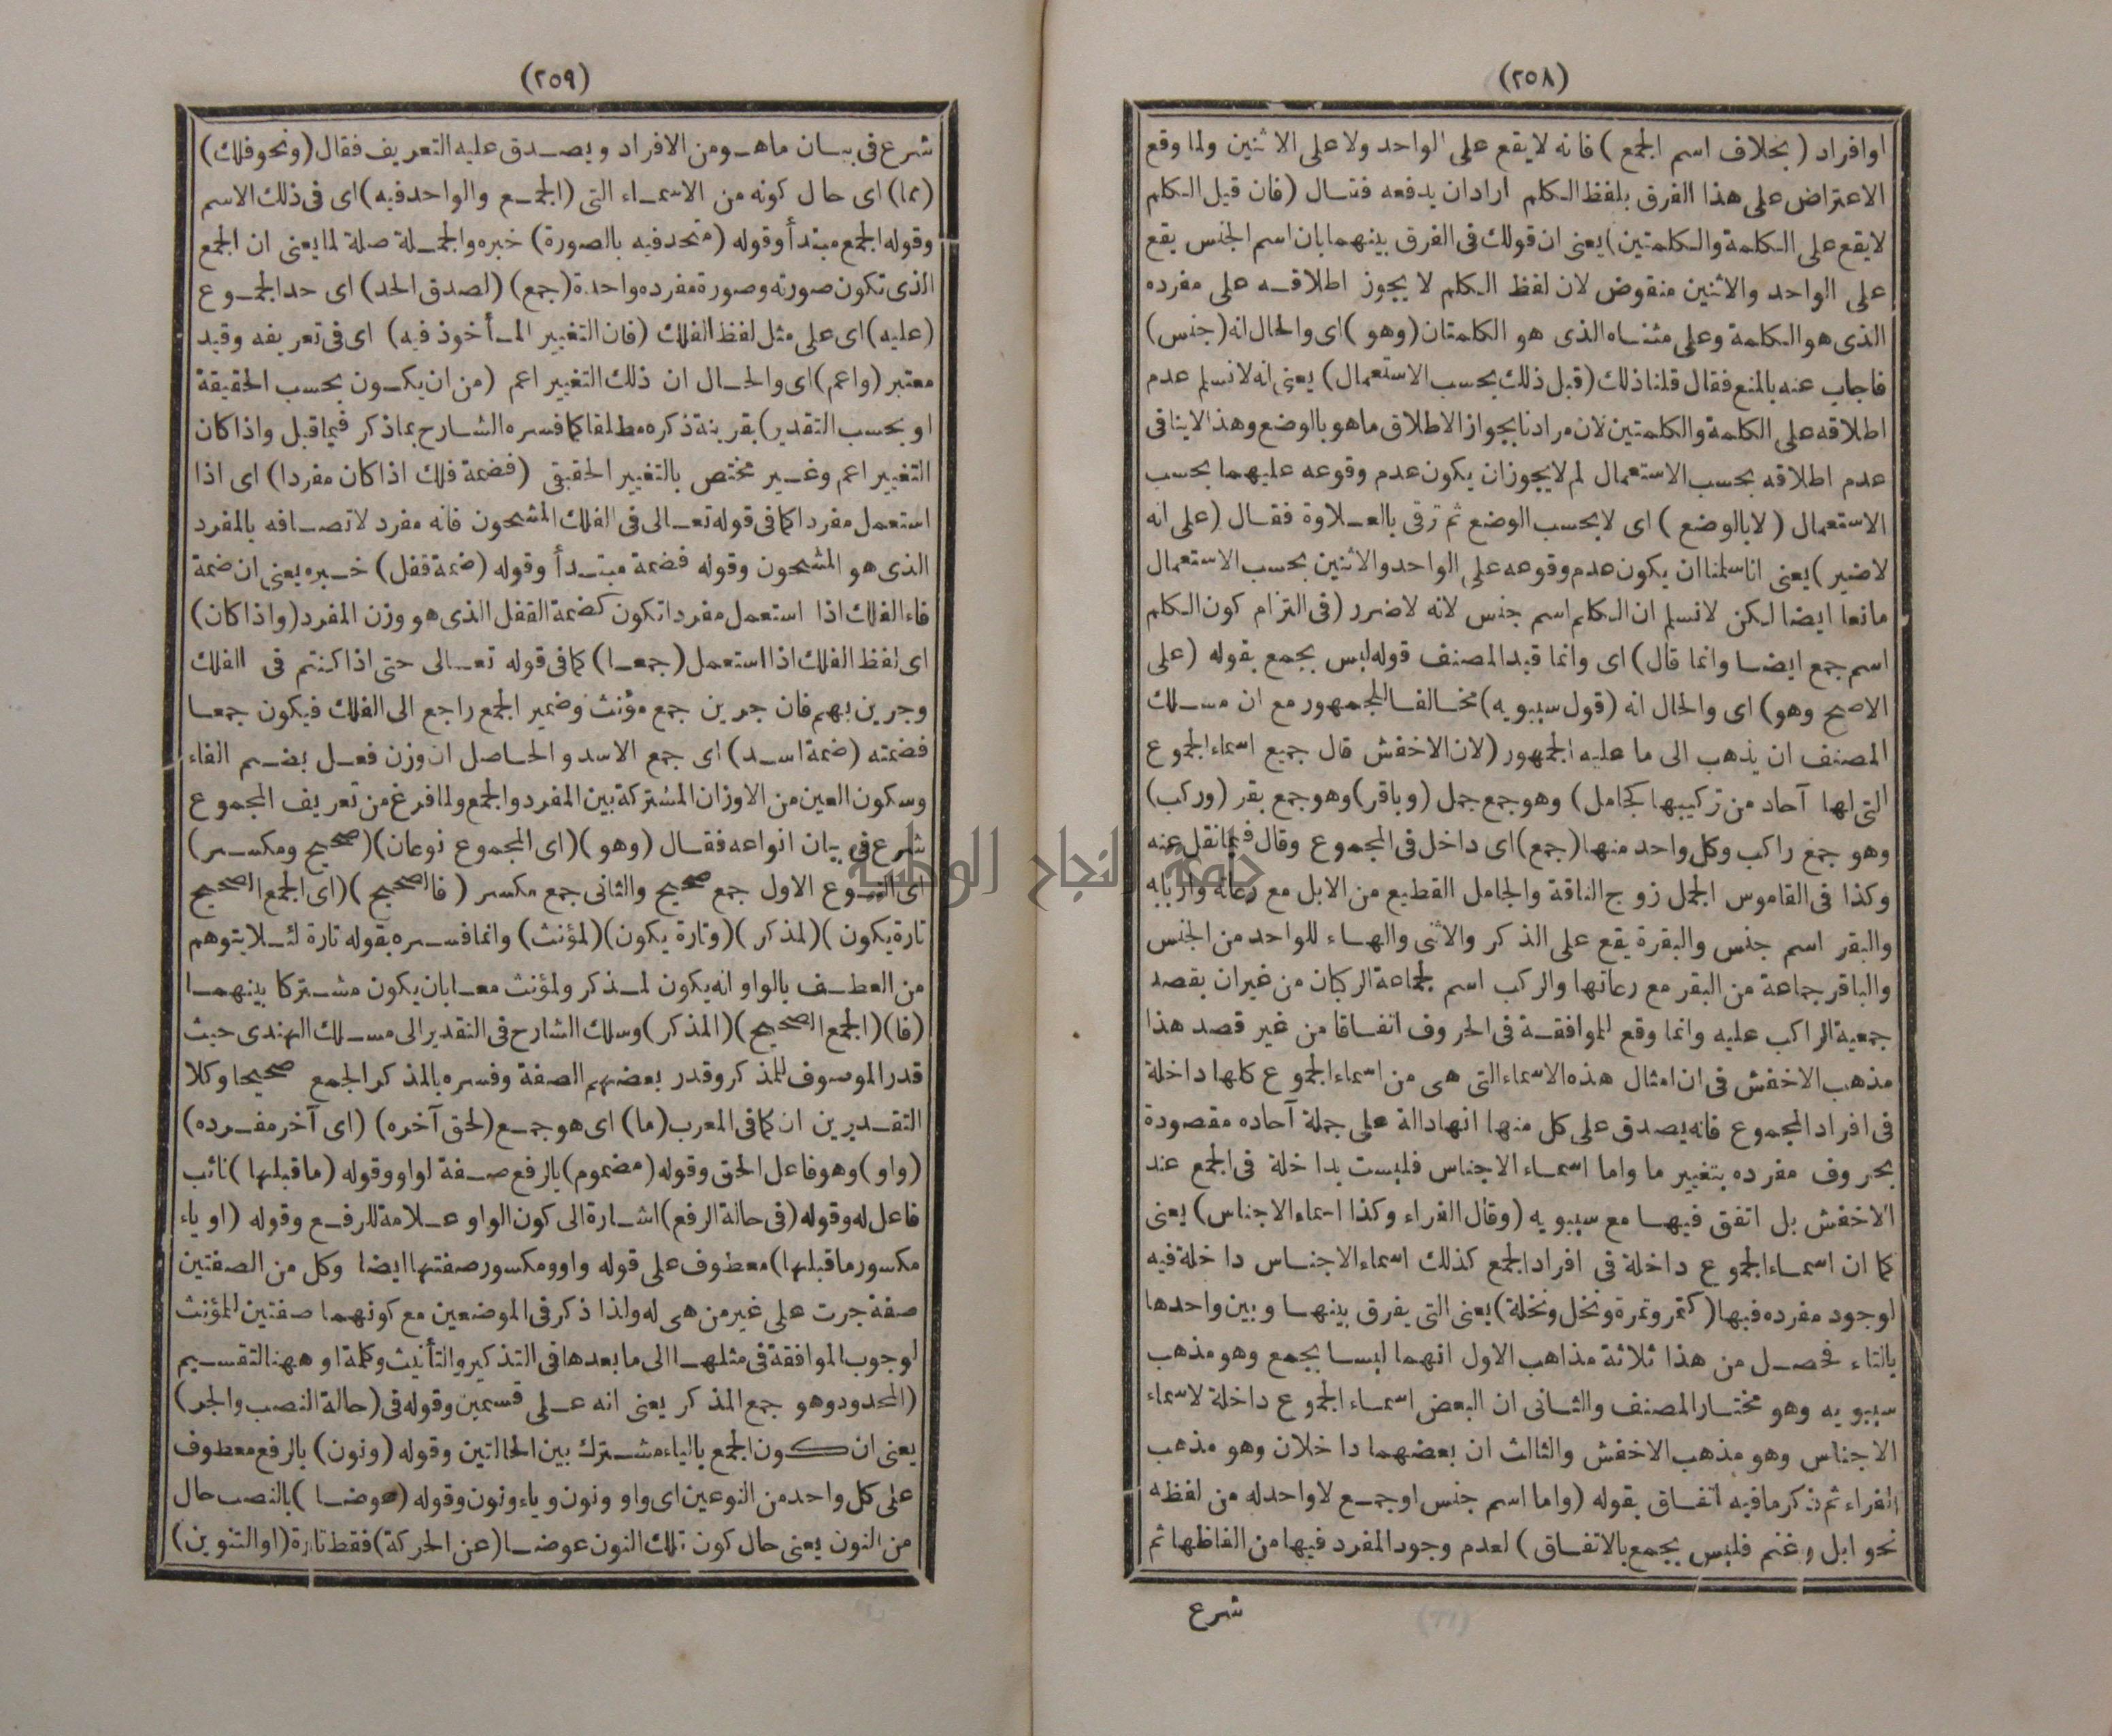 (٢٥٨)
اوافراد (بخلاف اسم الجمع) فانه لا يقع على الواحد ولا على الاثنين ولما وقع
الاعتراض على هذا الفرق بلفظ الكلم ارادان يدفعه فقال (فان قيل الكلم
لايقع على الكلمة والكلمتين) يعنى ان قولك فى الفرق بينهما بان اسم الجنس يقع
على الواحد والاثنين منقوض لان لفظ الكلم لا يجوز اطلاقه على مفرده
الذى هو الكلمة وعلى مثناه الذى هو الكلمتان (وهو) اى والحال انه (جنس)
فاجاب عنه بالمنع فقال قلنا ذلك (قبل ذلك بحسب الاستعمال) يعنى انه لا نسلم عدم
اطلاقه على الكلمة والكلمتين لان مرادنا بجواز الاطلاق ماهو بالوضع وهذا لاينافى
عدم اطلاقه بحسب الاستعمال لم لايجوزان يكون عدم وقوعه عليهما بحسب
الاستعمال (لا بالوضع) اى لا بحسب الوضع ثم ترقى بالعلاوة فقال (على انه
لاضير) يعنى اناسلمناان يكون عدم وقوعه على الواحد والاثنين بحسب الاستعمال
مانعا ايضا لكن لانسلم ان الكلم اسم جنس لانه لاضرر (فى التزام كون الكلم
اسم جمع ايضا وانما قال) اى وانما قيد المصنف قوله ليس بجمع بقوله (على
الاصح وهو) اى والحال انه (قول سيبويه) مخالفا للجمهور مع ان مسلك
المصنف ان يذهب الى ما عليه الجمهور (لان الاخفش قال جميع اسماء الجموع
التى لها آحاد من تركيبها كجامل) وهو جمع جمل (وباقر) وهو جمع بقر (وركب)
وهو جمع راكب وكل واحد منها (جمع) اى داخل فى المجموع وقال فيما نقل عنه
وكذا فى القاموس الجمل زوج الناقة والجامل القطيع من الابل مع رعاته واربابه
والبقر اسم جنس والبقرة يقع على الذكر والانثى والهاء للواحد من الجنس
والباقر جماعة من البقر مع رعاتها والركب اسم لجماعة الركبان من غيران يقصد
جمعية الراكب عليه وانما وقع الموافقة فى الحروف اتفاقا من غير قصد هذا
مذهب الاخفش فى ان امثال هذه الاسماء التى هى من اسماء الجموع كلها داخلة
فى افراد المجموع فانه يصدق على كل منها انها دالة على جملة آحاده مقصودة
بحروف مفرده بتغيير ما واما اسماء الاجناس فليست بداخلة فى الجمع عند
الاخفش بل اتفق فيها مع سيبويه (وقال الفراء وكذا اسماء الاجناس) يعنى
كما ان اسماء الجموع داخلة فى افراد الجمع كذلك اسماء الاجناس داخلة فيه
لوجود مفرده فيها (كتمر وتمرة ونخل ونخلة) يعنى التى يفرق بينها وبين واحدها
بالتاء فحصل من هذا ثلاثة مذاهب الاول انهما ليسا بجمع وهو مذهب
سيبويه وهو مختار المصنف والثانى ان البعض اسماء الجموع داخلة لاسماء
الاجناس وهو مذهب الاخفش والثالث ان بعضهما داخلان وهو مذهب
الفراء ثم ذكر مافيه اتفاق بقوله (واما اسم جنس اوجمع لاواحدله من لفظه
نحو ابل وغنم فليس بجمع بالاتفاق) لعدم وجود المفرد فيها من الفاظها ثم
شرع
(٢٥٩)
شرع فى بيان ماهو من الافراد ويصدق عليه التعريف فقال (ونحو فلك)
(مما) اى حال كونه من الاسماء التى (الجمع والواحد فيه) اى فى ذلك الاسم
وقوله الجمع مبتدأ وقوله (متحد فيه بالصورة) خبره والجملة صلة لما يعنى ان الجمع
الذى تكون صورته وصورة مفرده واحدة (جمع) (لصدق الحد) اى حد الجموع
(عليه) اى على مثل لفظ الفلك (فان التغيير المأخوذ فيه) اى فى تعريفه وقيد
معتبر (واعم) اى والحال ان ذلك التغيير اعم (من ان يكون بحسب الحقيقة
او بحسب التقدير) بقرينة ذكره مطلقا كما فسره الشارح بماذكر فيما قبل واذا كان
التغيير اعم وغير مختص بالتغيير الحقيقى (فضمة فلك اذا كان مفردا) اى اذا
استعمل مفردا كما فى قوله تعالى فى الفلك المشحون فانه مفرد لاتصافه بالمفرد
الذى هو المشحون وقوله فضمة مبتدأ وقوله (ضمة قفل) خبره يعنى ان ضمة
فاء الفلك اذا استعمل مفردا تكون كضمة القفل الذى هو وزن المفرد (واذا كان)
اى لفظ الفلك اذا استعمل (جمعا) كما فى قوله تعالى حتى اذا كنتم فى الفلك
وجرين بهم فان جرين جمع مؤنث وضمير الجمع راجع الى الفلك فيكون جمعا
فضمته (ضمة اسد) اى جمع الاسد والحاصل ان وزن فعل بضم الفاء
وسكون العين من الاوزان المشتركة بين المفرد والجمع ولما فرغ من تعريف المجموع
شرع فى بيان انواعه فقال (وهو) (اى المجموع نوعان) (صحيح ومكسر)
اى النوع الاول جمع صحيح والثانى جمع مكسر (فالصحيح) (اى الجمع الصحيح
تارة يكون) (لمذكر) (وتارة يكون) (لمؤنث) وانما فسره بقوله تارة لئلا يتوهم
من العطف بالواو انه يكون لمذكر ولمؤنث معا بان يكون مشتركا بينهما
(فا) (الجمع الصحيح) (المذكر) وسلك الشارح فى التقدير الى مسلك الهندى حيث
قدر الموصوف للمذكر وقدر بعضهم الصفة وفسره بالمذكر الجمع صحيحا وكلا
التقديرين ان كما فى المعرب (ما) اى هو جمع (لحق آخره) (اى آخر مفرده)
(واو) وهو فاعل الحق وقوله (مضموم) بالرفع صفة لواو وقوله (ماقبلها) نائب
فاعل له وقوله (فى حالة الرفع) اشارة الى كون الواو علامة للرفع وقوله (او ياء
مكسور ماقبلها) معطوف على قوله واو ومكسور صفتها ايضا وكل من الصفتين
صفة جرت على غير من هى له ولذا ذكر فى الموضعين مع كونهما صفتين للمؤنث
لوجوب الموافقة فى مثلها الى ما بعدها فى التذكير والتأنيث وكلمة او ههنا لتقسيم
(المحدود وهو جمع المذكر يعنى انه على قسمين وقوله فى (حالة النصب والجر)
يعنى ان كون الجمع بالياء مشترك بين الحالتين وقوله (ونون) بالرفع معطوف
على كل واحد من النوعين اى واو ونون وياء ونون وقوله (عوضا) بالنصب حال
من النون يعنى حال كون تلك النون عوضا (عن الحركة) فقط تارة (او التنوين)
جامعة النجاح الوطنية